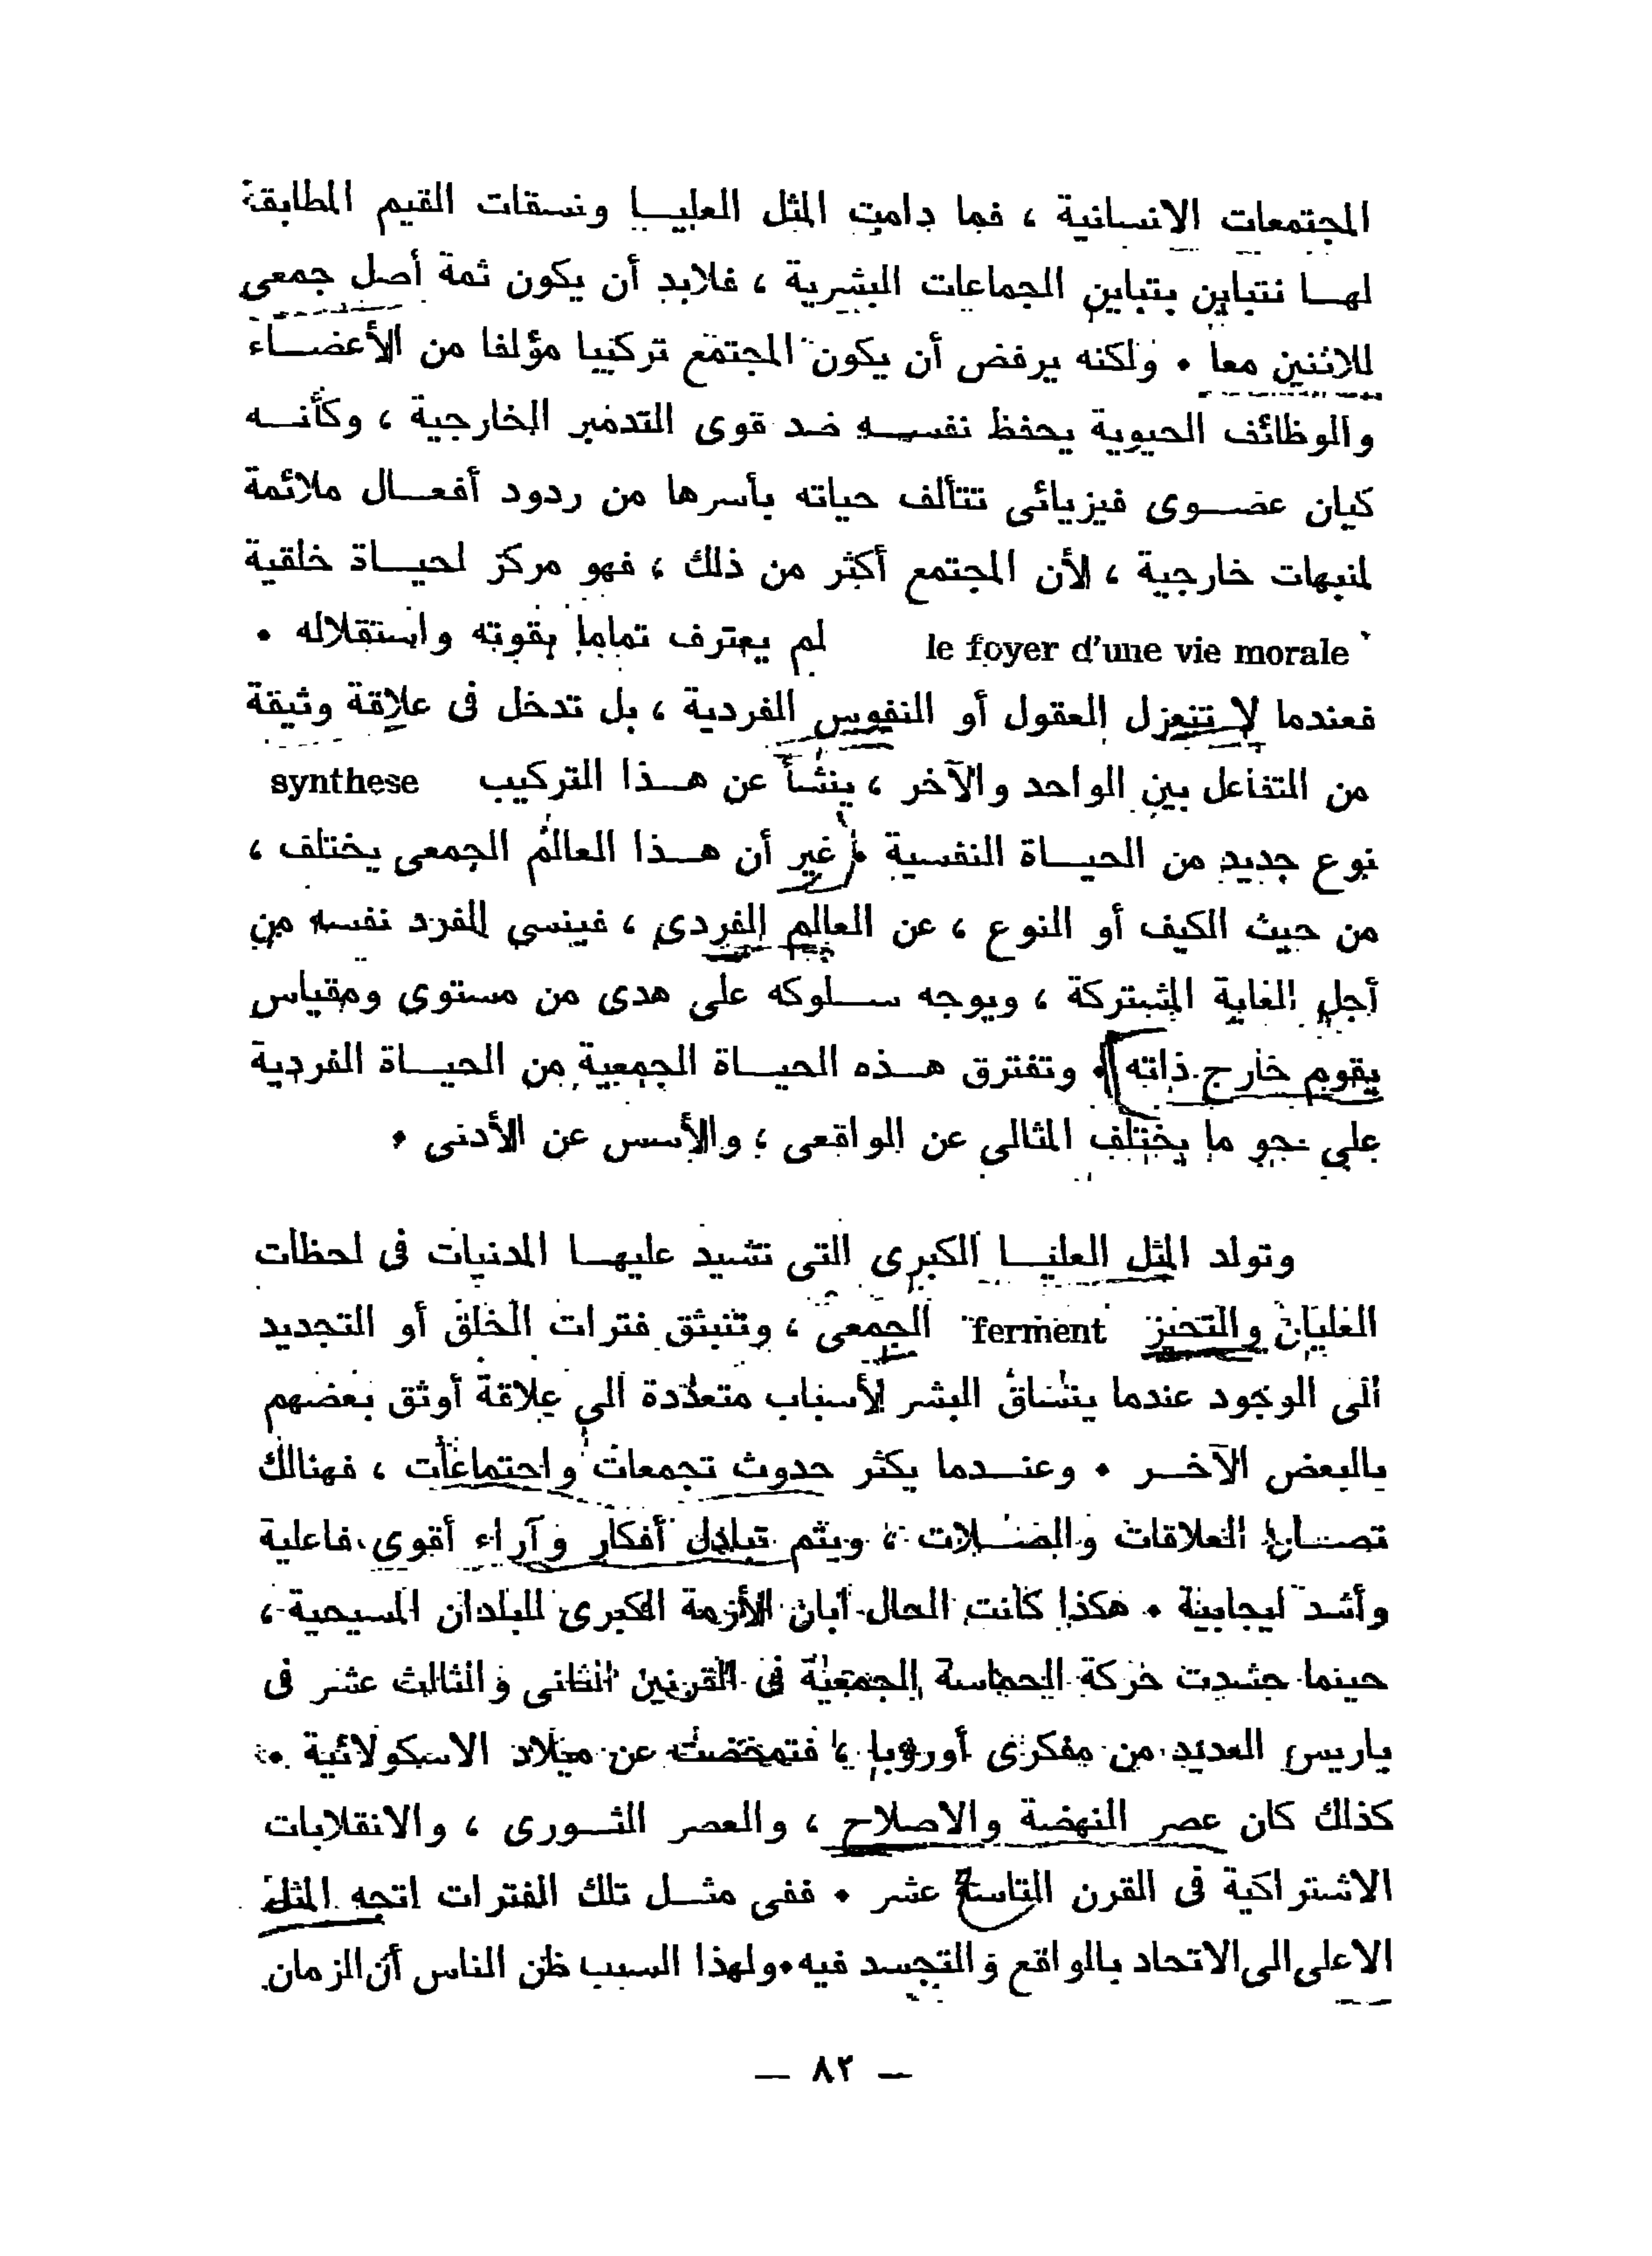 المجتمعات الانسانية ، فما دامت المثل العليا ونسقات القيم المطابقة
لها تتباين بتباين الجماعات البشرية ، فلابد أن يكون ثمة أصل جمعى
للاثنين معا . ولكنه يرفض أن يكون المجتمع تركيبا مؤلفا من الأعضاء
والوظائف الحيوية يحفظ نفسه ضد قوى التدمير الخارجية ، وكأنه
كيان عضوى فيزيائى تتألف حياته بأسرها من ردود أفعال ملائمة
لمنبهات خارجية ، لأن المجتمع أكثر من ذلك ، فهو مركز لحياة خلقية
le foyer d'une vie morale لم يعترف تماما بقوته واستقلاله .
فعندما لا تنعزل العقول أو النفوس الفردية ، بل تدخل فى علاقة وثيقة
من التفاعل بين الواحد والآخر ، ينشأ عن هذا التركيب synthese
نوع جديد من الحياة النفسية . غير أن هذا العالم الجمعى يختلف ،
من حيث الكيف أو النوع ، عن العالم الفردى ، فينسى الفرد نفسه من
أجل الغاية المشتركة ، ويوجه سلوكه على هدى من مستوى ومقياس
يقوم خارج ذاته . وتفترق هذه الحياة الجمعية من الحياة الفردية
على نحو ما يختلف المثالى عن الواقعى ، والأسس عن الأدنى .
وتولد المثل العليا الكبرى التى تشيد عليها المدنيات فى لحظات
الغليان والتحنز ferment الجمعى ، وتنبثق فترات الخلق أو التجديد
الى الوجود عندما ينساق البشر لأسباب متعددة الى علاقة أوثق بعضهم
بالبعض الآخر . وعندما يكثر حدوث تجمعات واجتماعات ، فهنالك
تصان العلاقات والصلات ، ويتم تبادل أفكار وآراء أقوى فاعلية
وأشد ايجابية . هكذا كانت الحال ابان الأزمة الكبرى للبلدان المسيحية ،
حينما حشدت حركة الحماسة الجمعية فى القرنين الثانى والثالث عشر فى
باريس العديد من مفكرى أوروبا ، فتمخضت عن ميلاد الاسكولائية .
كذلك كان عصر النهضة والاصلاح ، والعصر الثورى ، والانقلابات
الاشتراكية فى القرن التاسع عشر . ففى مثل تلك الفترات اتجه المثل
الاعلى الى الاتحاد بالواقع والتجسد فيه . ولهذا السبب ظن الناس أن الزمان
— ٨٢ —